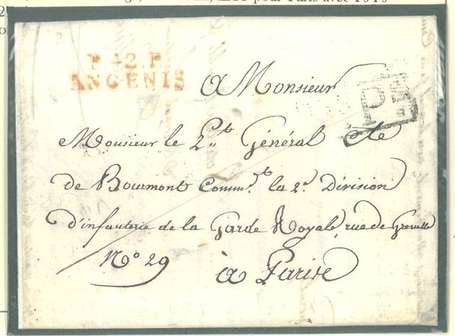 P.42.P.
ANCENIS
PP
a Monsieur
Monsieur le Lt. Général Cte
de Bourmont Commt. la 2e Division
d'infanterie de la Garde Royale, rue de Grenelle
No 29
à Paris